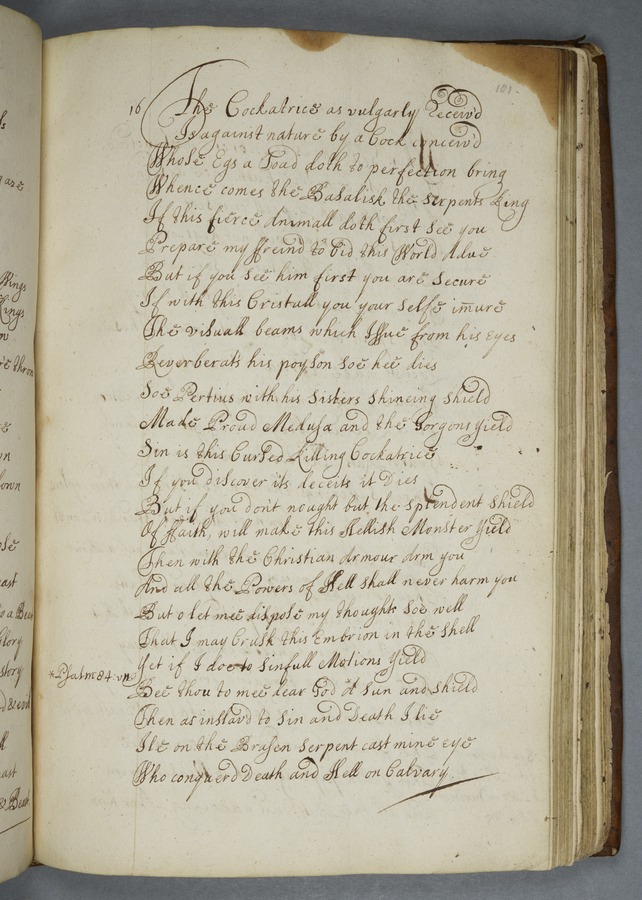 101.
16 The Cockatrice as vulgarly Receiv'd
Is against nature by a Cock conceiv'd
Whose Egs a Toad doth to perfection bring
Whence comes the Basalisk the serpents King
If this fierce Animall doth first see you
Prepare my ffreind to bid this World Adue
But if you see him first you are secure
If with this Cristall you your selfe im̄ure
The visuall beams which Issue from his Eyes
Reverberats his poyson soe hee dies
Soe Pertius with his sisters shineing shield
Made Proud Medusa and the Gorgons yield
Sin is this Cursed Killing Cockatrice
If you discover its deceits it Dies
But if you don't nought but the splendent shield
Of ffaith, will make this Hellish Monster yield
Then with the Christian Armour Arm you
And all the Powers of Hell shall never harm you
But o let mee dispose my thoughts soe well
That I may Crush this Embrion in the shell
Yet if I doe to sinfull Motions yield
*Psalm 84. vn
Bee thou to mee dear God A sun and shield
Then as inslavd to sin and Death I lie
Ile on the Brasen serpent cast mine Eye
Who conquerd Death and Hell on Calvary.
Rings
Kings
throne
own
east
Glory
story
& evil
east
& Beast